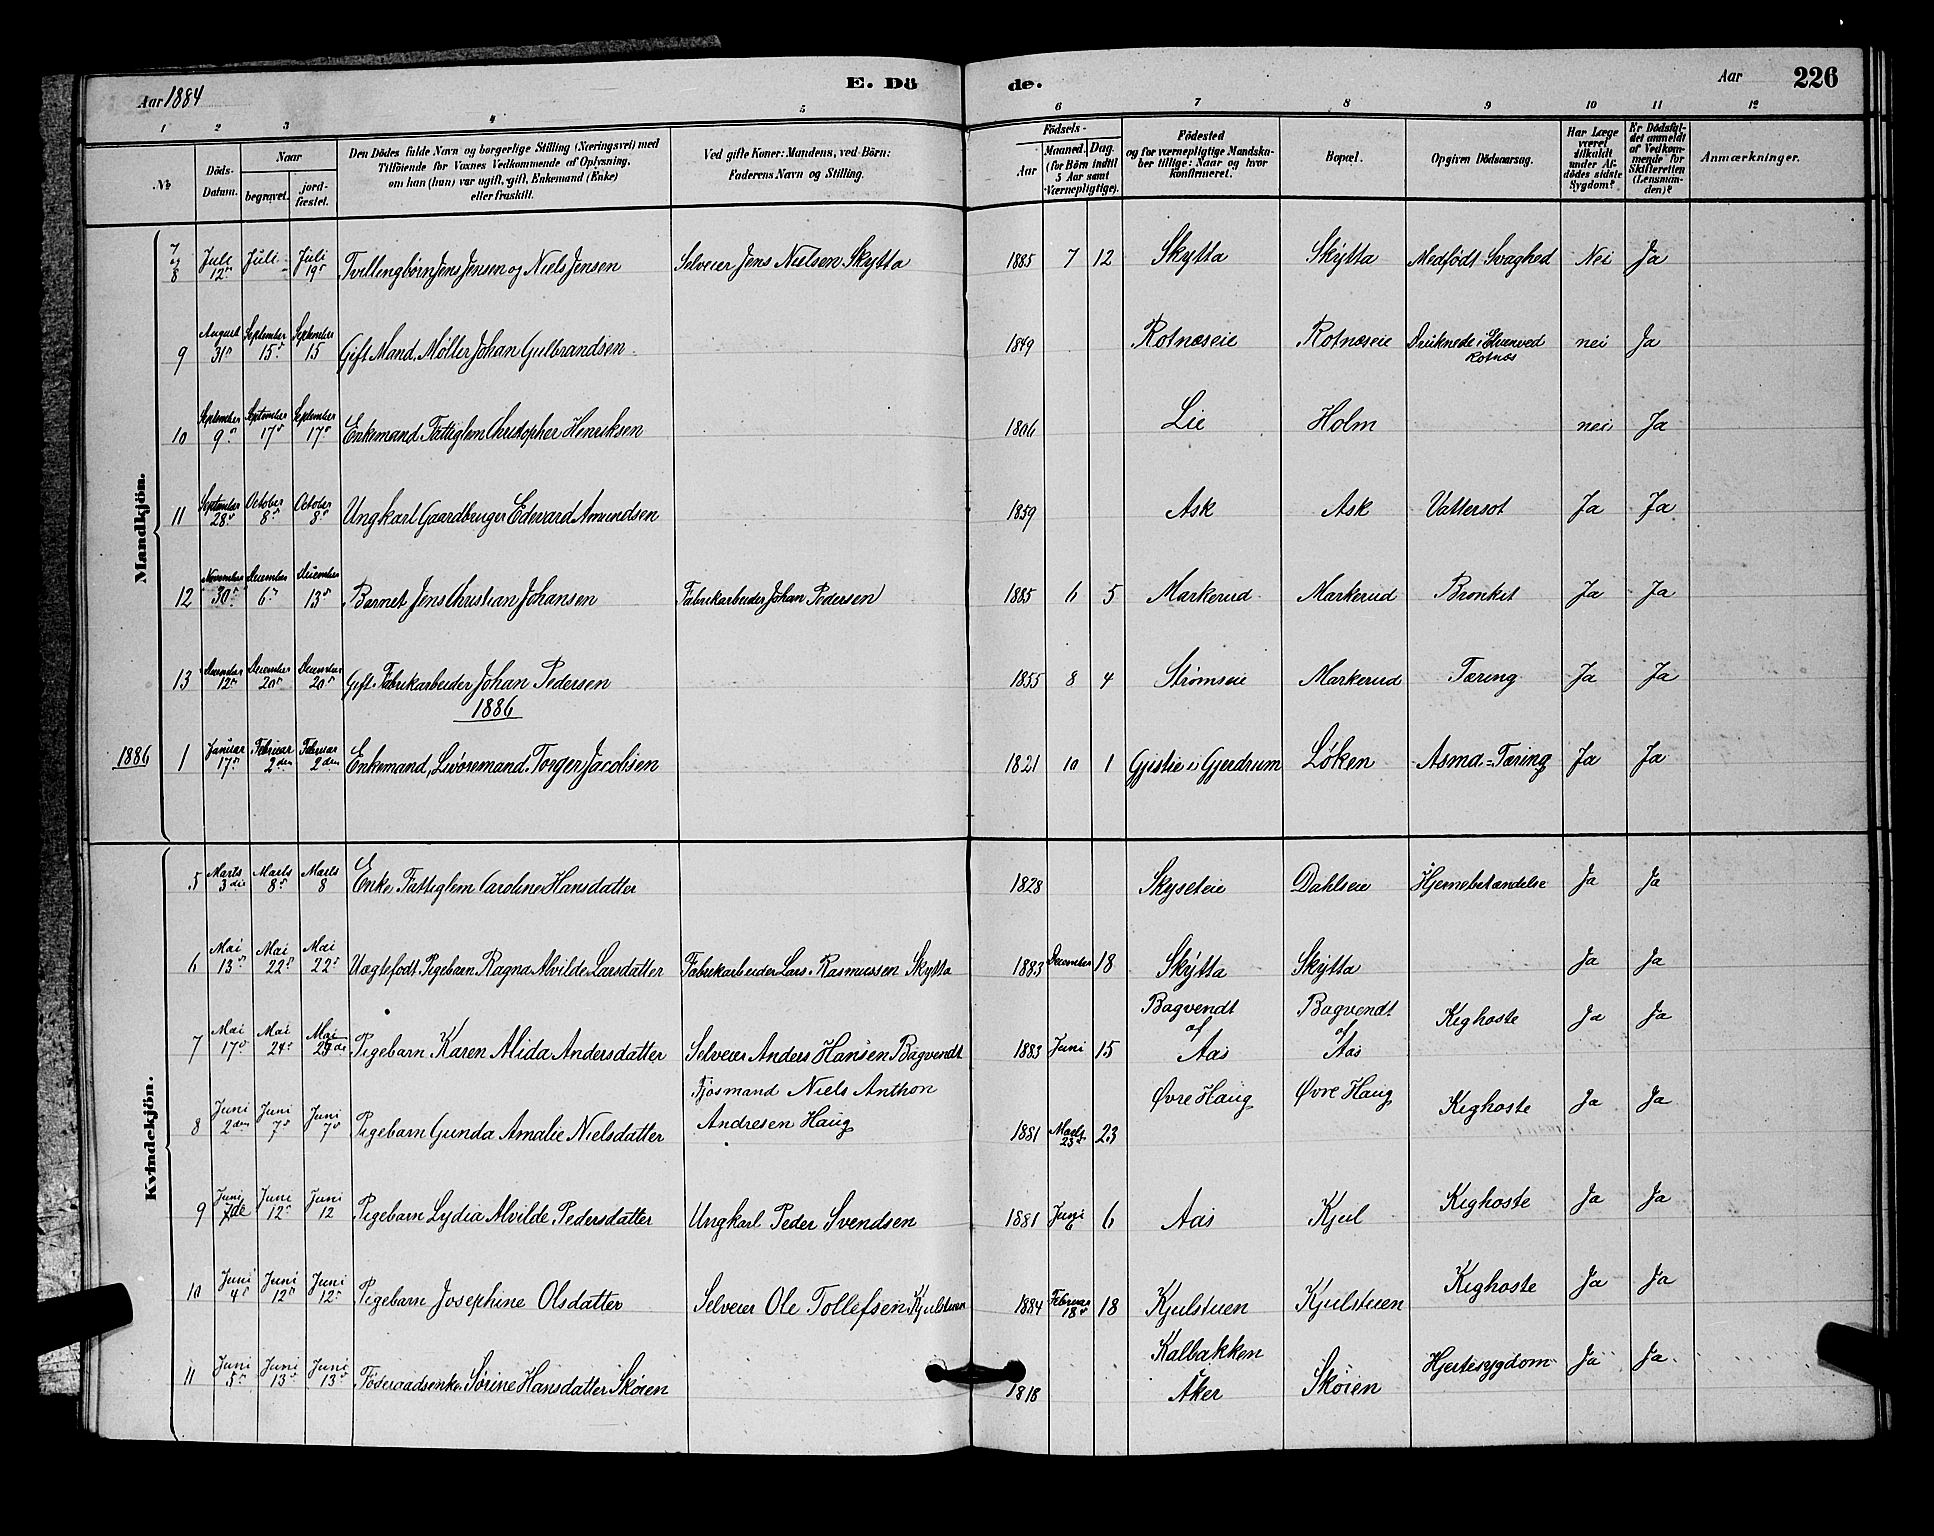 Aar 1884
E. Dö
de.
Aar
226
1 2 3 4 5 6 7 8 9 10 11 12
№
Döds-Datum.
Naar
begravet.
jord-fæstet.
Den Dödes fulde Navn og borgerlige Stilling (Næringsvei) med
Tilföiende for Voxnes Vedkommende af Oplysning,
om han (hun) var ugift, gift, Enkemand (Enke)
eller fraskilt.
Ved gifte Koner: Mandens, ved Börn:
Faderens Navn og Stilling.
Födsels-
Aar
Maaned. Dag.
(for Börn indtil
5 Aar samt
Værnepligtige).
Födested
og for værnepligtige Mandska-
ber tillige: Naar og hvor
konfirmeret.
Bopæl.
Opgiven Dödsaarsag.
Har Læge
været
tilkaldt
under Af-
dödes sidste
Sygdom?
Er Dödsfal-
det anmeldt
af Vedkom-
mende for
Skifteretten
(Lensman-
den)?
Anmærkninger.
Mandkjön.
7 og 8 Juli 12te Juli - Juli 19de Tvillingbørn Jens Jensen og Niels Jensen Selveier Jens Nielsen Skytta 1885 7 12 Skytta Skytta Medfødt Svaghed Nei Ja
9 August 31te September 15de September 15 Gift Mand, Møller Johan Gulbrandsen 1849 Rotnæseie Rotnæseie Druknede i Elven ved Rotnæs nei Ja
10 September 9de September 17de September 17de Enkemand Fattiglem Christopher Henriksen 1806 Lie Holm nei Ja
11 September 28de October 8de October 8de Ungkarl Gaardbruger Edevard Amundsen 1859 Ask Ask Vattersot Ja Ja
12 November 30te December 6te December 13de Barnet Jens Christian Johansen Fabrikarbeider Johan Pedersen 1885 6 5 Markerud Markerud Bronkit Ja Ja
13 December 12te December 20de December 20de Gift Fabrikarbeider Johan Pedersen 1855 8 4 Strømseie Markerud Tæring Ja Ja
1886
1886 1 Januar 17de Februar 2den Februar 2den Enkemand, Livøremand Torger Jacobsen 1821 10 1 Gjistie i Gjerdrum Løken Asma-Tæring Ja Ja
Kvindekjön.
5 Marts 3die Marts 8de Marts 8 Enke Fattiglem Caroline Hansdatter 1828 Skyseteie Dahlseie Hjernebetændelse Ja Ja
6 Mai 13de Mai 22de Mai 22de Uægtefødt Pigebarn Ragna Alvilde Larsdatter Fabrikarbeider Lars Rasmussen Skytta 1883 December 18 Skytta Skytta Ja Ja
7 Mai 17de Mai 24de Mai Pigebarn Karen Alida Andersdatter Selveier Anders Hansen Bagvendt 1883 Juni 15 Bagvendt af Aas Bagvendt af Aas Kighoste Ja Ja
8 Juni 2den Juni 7de Juni 7de Pigebarn Gunda Amalie Nielsdatter Fjøsmand Niels Anthon
Andresen Haug 1881 Marts 23de 23 Øvre Haug Øvre Haug Kighoste Ja Ja
9 Juni 7de Juni 12te Juni 12 Pigebarn Lydia Alvilde Pedersdatter Ungkarl Peder Svendsen 1881 Juni 6 6 Aas Kjul Kighoste Ja Ja
10 Juni 4de Juni 12te Juni 12te Pigebarn Josephine Olsdatter Selveier Ole Tollefsen Kjulstuen 1884 Februar 18de 18 Kjulstuen Kjulstuen Kighoste Ja Ja
11 Juni 5te Juni 13de Juni 13de Føderaadsenke Sørine Hansdatter Skøien 1818 Kalbakken Aker Skøien Hjertesygdom Ja Ja